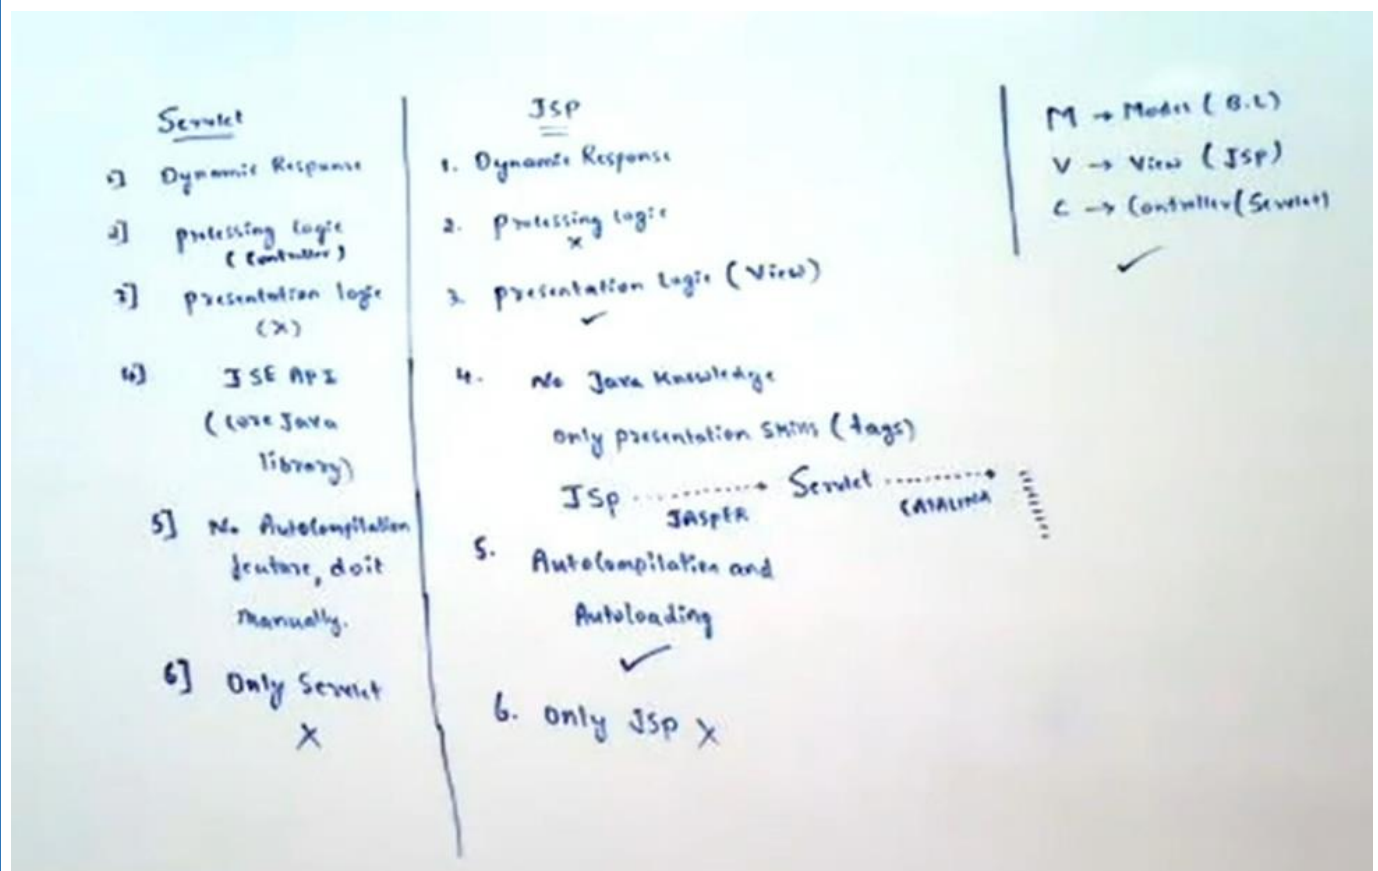 Servlet
1] Dynamic Response
2] processing logic
(Controller)
3] presentation logic
(X)
4] JSE API
(core Java
library)
5] No Autocompilation
feature, do it
manually.
6] Only Servlet
X
JSP
1. Dynamic Response
2. processing logic
X
3. presentation logic (View)
✓
4. No Java Knowledge
only presentation skills (tags)
JSP → Servlet →
JASPER CATALINA
5. Autocompilation and
Autoloading
✓
6. only JSP X
M → Model (B.L)
V → View (JSP)
C → Controller (Servlet)
✓